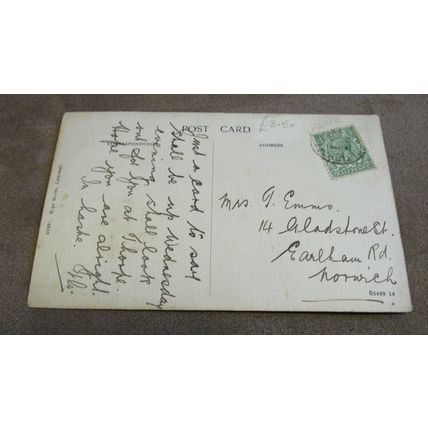 POST CARD
£3.50
ADDRESS
Just a card to say
shall be up Wednesday
evening shall look
out for you at Thorpe.
Hope you are alright.
In haste.
Mrs. T. Emms.
14 Gladstone St.
Earlham Rd.
Norwich
G5469 14